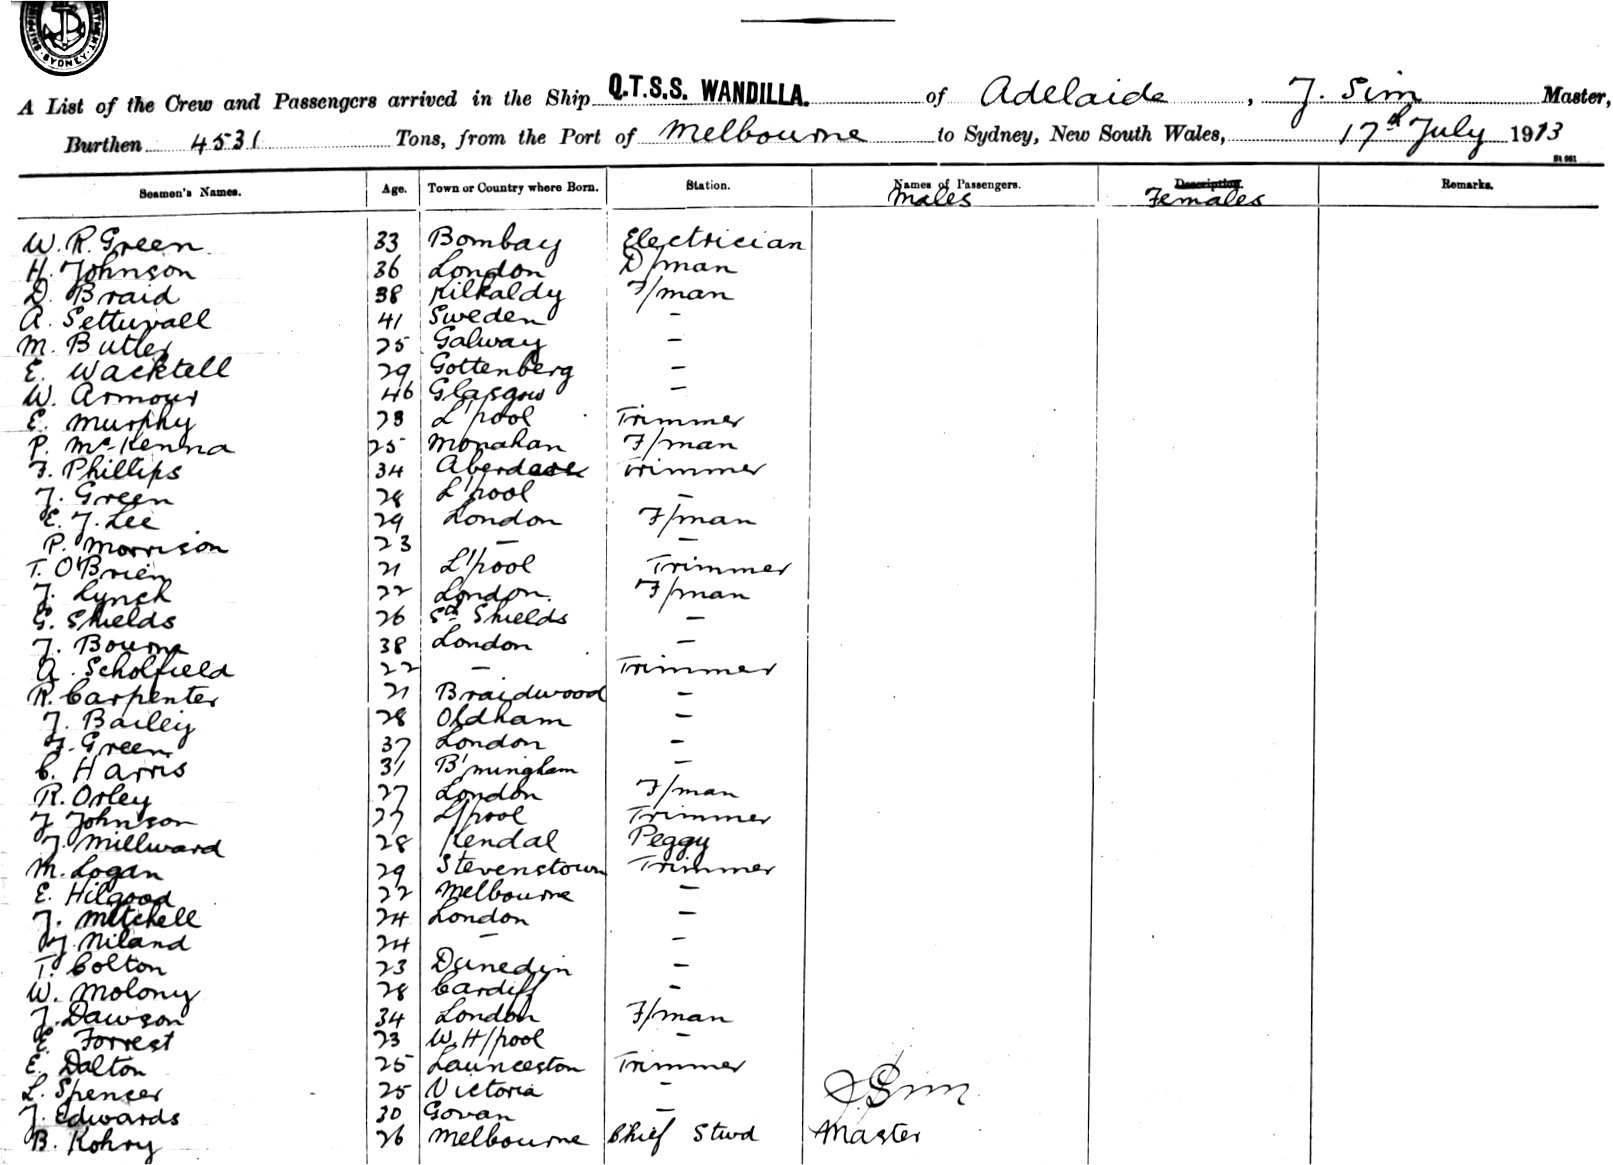 SYDNEY
A List of the Crew and Passengers arrived in the Ship Q.T.S.S. WANDILLA. of Adelaide, J. Sim Master,
Burthen 4531 Tons, from the Port of Melbourne to Sydney, New South Wales, 17th July 1913
St 961
Seamen's Names. Age. Town or Country where Born. Station. Names of Passengers. Description. Remarks.
Males Females
W. R. Green 33 Bombay Electrician
H. Johnson 36 London D/man
D. Braid 38 Kilkaldy F/man
A. Settuvall 41 Sweden -
M. Butler 25 Galway -
E. Wacktell 29 Gottenberg -
W. Armour 46 Glasgow -
E. Murphy 23 L'pool Trimmer
P. McKenna 25 Monahan F/man
F. Phillips 34 Aberdare Trimmer
J. Green 28 L'pool -
E. J. Lee 29 London F/man
P. Morrison 23 - -
T. O'Brien 21 L'pool Trimmer
J. Lynch 22 London. F/man
G. Shields 26 Sth Shields -
J. Bourne 38 London -
A. Scholfield 22 - Trimmer
R. Carpenter 21 Braidwood -
J. Bailey 28 Oldham -
J. Green 37 London -
C. Harris 31 B'mingham -
R. Orley 27 London F/man
J. Johnson 27 L/pool Trimmer
J. Millward 28 Kendal Peggy
M. Logan 29 Stevenstown Trimmer
E. Hilgood 22 Melbourne -
J. Mitchell 24 London -
J. Niland 24 - -
T. Colton 23 Dunedin -
W. Molony 28 Cardiff -
J. Dawson 34 London F/man
E. Forrest 23 W. H/pool -
E. Dalton 25 Launceston Trimmer
L. Spencer 25 Victoria -
J Sim
J. Edwards 30 Govan -
B. Kohry 26 Melbourne Chief Stwd Master